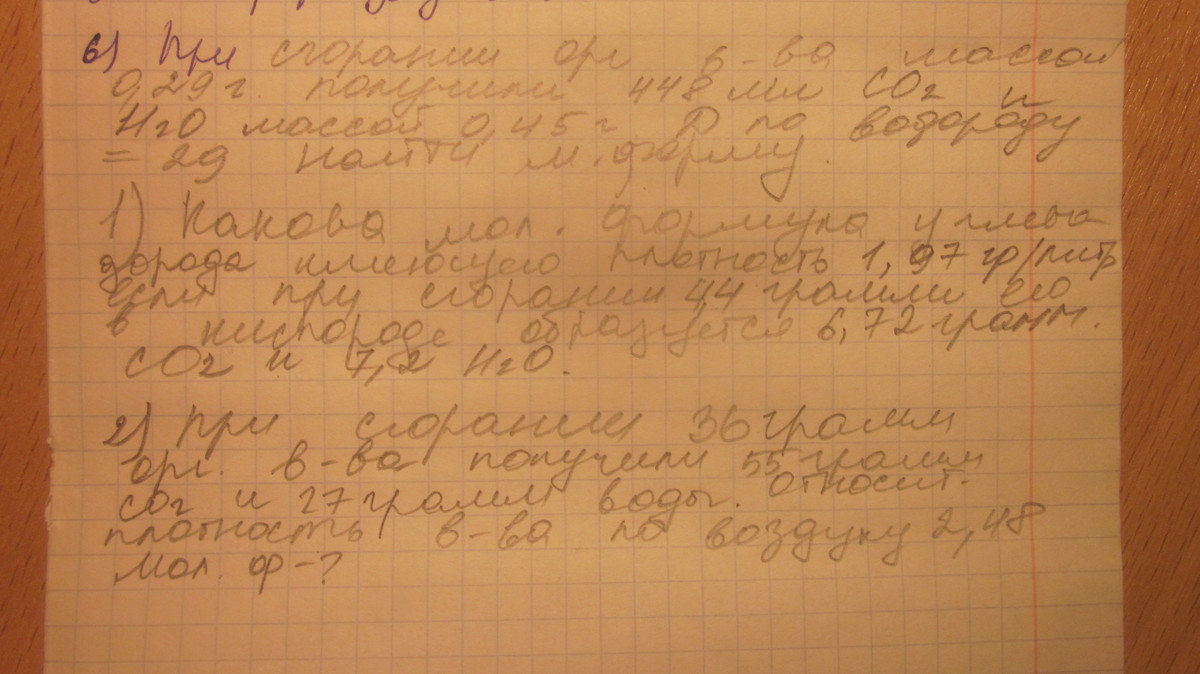 6) При сгорании орг в-ва массой
0,29 г. получили 448 мл CO2 и
H2O массой 0,45 г. D по водороду
= 29 найти м. форму.
1) Какова мол. формула углево
дорода имеющего плотность 1,97 гр/литр
если при сгорании 4,4 грамм его
в кислороде образуется 6,72 грамм.
CO2 и 7,2 H2O.
2) При сгорании 36 грамм
орг. в-ва получили 55 грамм
CO2 и 27 грамм воды. Относит.
плотность в-ва по воздуху 2,48
Мол. ф-?